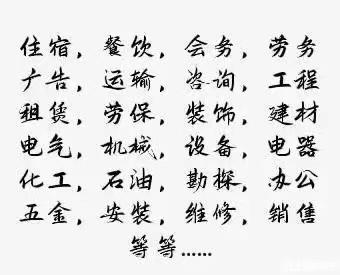 住宿，餐饮，会务，劳务
广告，运输，咨询，工程
租赁，劳保，装饰，建材
电气，机械，设备，电器
化工，石油，勘探，办公
五金，安装，维修，销售
等等……